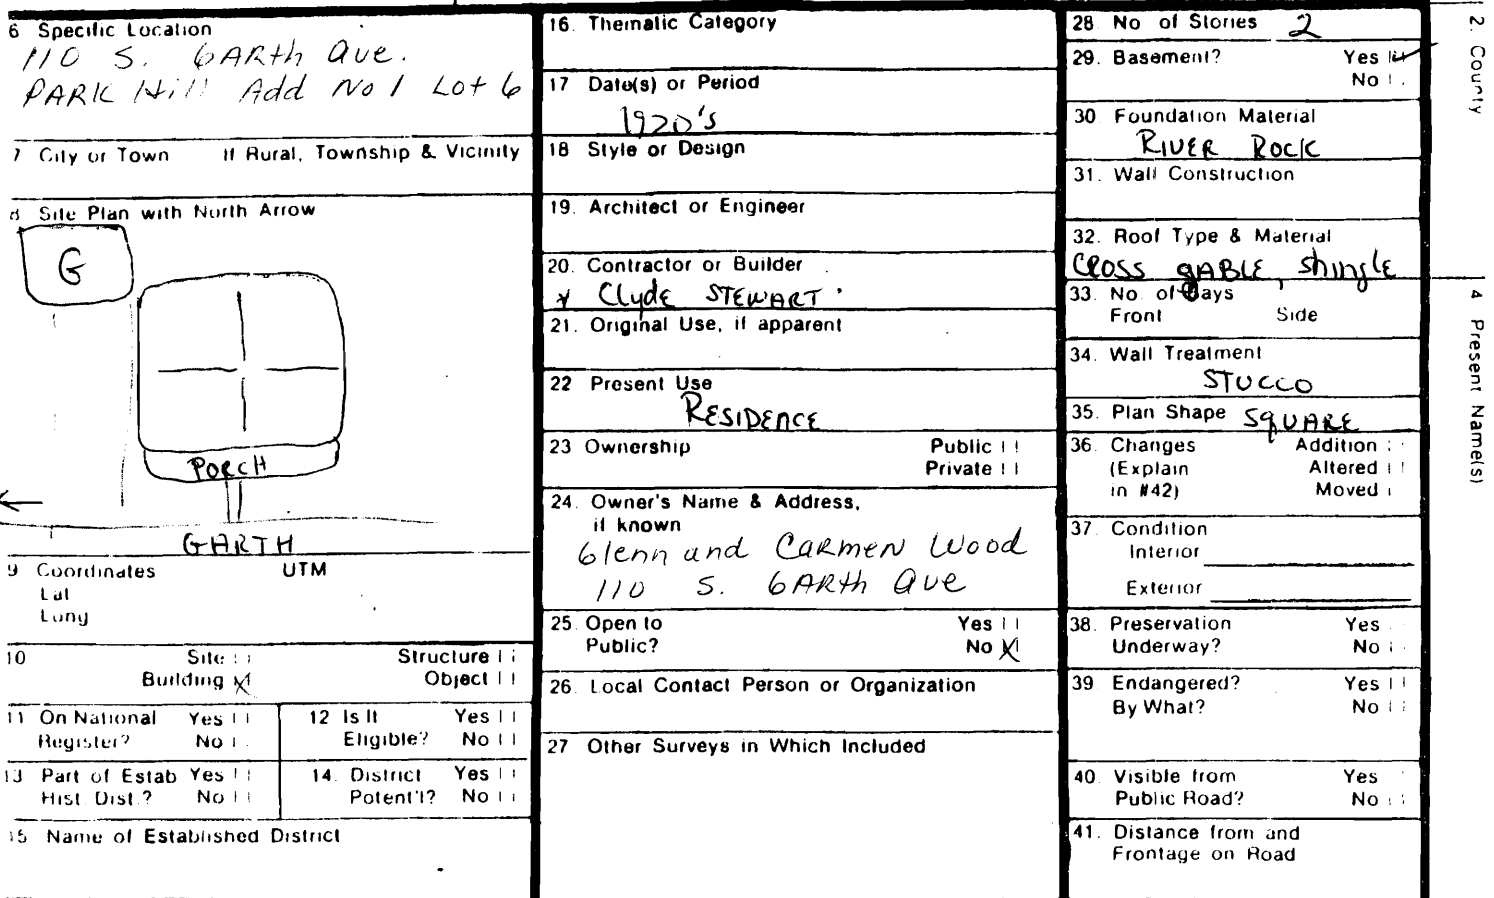 6 Specific Location
110 S. GARth Ave.
PARK Hill Add No 1 Lot 6
7 City or Town If Rural, Township & Vicinity
8 Site Plan with North Arrow
G
PORCH
GARTH
9 Coordinates UTM
Lat
Long
10 Site Structure
Building X Object
11 On National Register? Yes No
12 Is It Eligible? Yes No
13 Part of Estab Hist. Dist.? Yes No
14. District Potent'l? Yes No
15 Name of Established District
16. Thematic Category
17 Date(s) or Period
1920's
18 Style or Design
19. Architect or Engineer
20. Contractor or Builder
Clyde STEWART
21. Original Use, if apparent
22 Present Use
RESIDENCE
23 Ownership Public
Private
24. Owner's Name & Address,
if known
Glenn and CARMEN Wood
110 S. GARth Ave
25. Open to Yes
Public? No X
26. Local Contact Person or Organization
27 Other Surveys in Which Included
28 No of Stories 2
29. Basement? Yes
No
30 Foundation Material
RIVER ROCK
31. Wall Construction
32. Roof Type & Material
CROSS gABLE, Shingle
33. No. of Bays
Front Side
34. Wall Treatment
STUCCO
35. Plan Shape SqUARE
36. Changes Addition
(Explain Altered
in #42) Moved
37. Condition
Interior
Exterior
38. Preservation Yes
Underway? No
39 Endangered? Yes
By What? No
40. Visible from Yes
Public Road? No
41. Distance from and
Frontage on Road
2. County
4 Present Name(s)